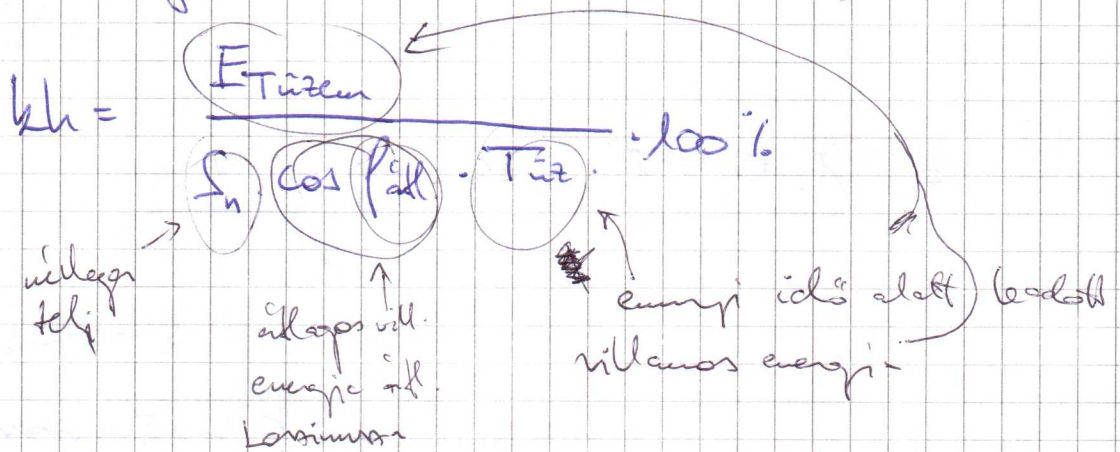 kh = E Tüzem / Sn · cos φátl · Tüz. · 100 %
telj
átlagos vill.
energia átl.
ennyi idő alatt leadott
villanos energia